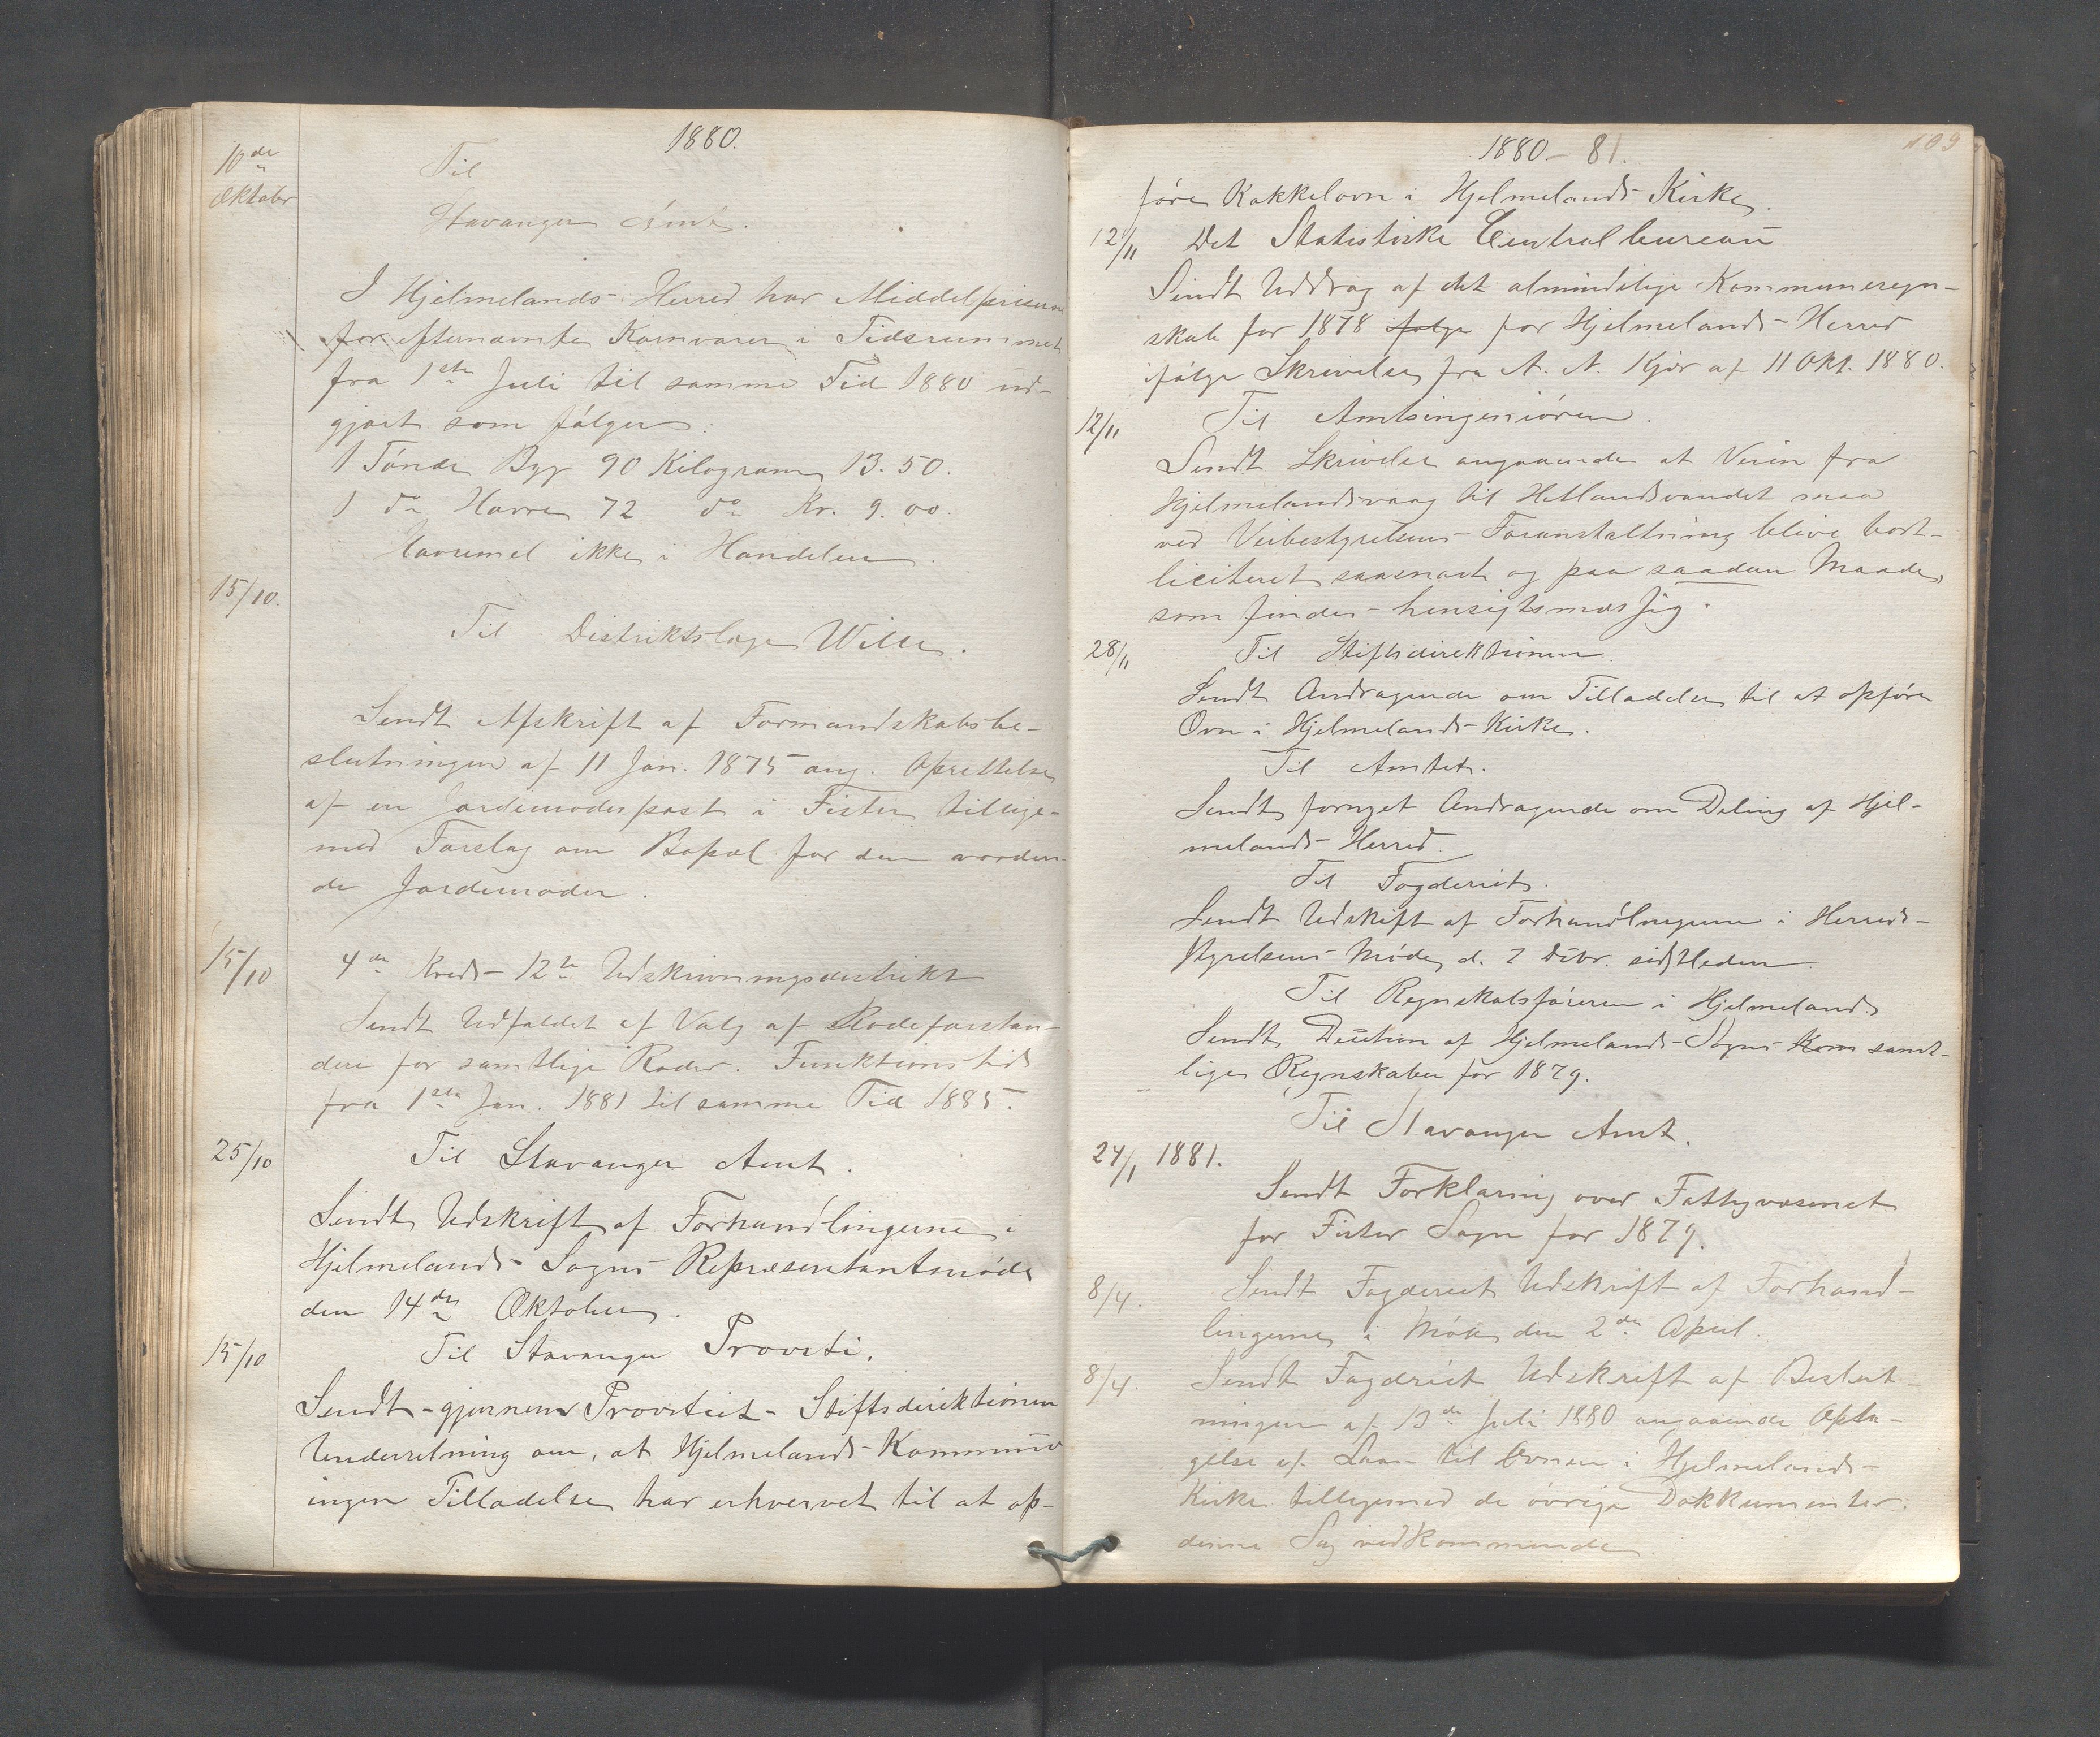 1880.
10de
Oktober
Til
Stavanger Amt.
I Hjelmelands-Herred har Middelpriserne
for efternævnte Kornvarer i Tidsrummet
fra 1ste Juli til samme Tid 1880 ud-
gjort som følger:
1 Tønde Byg 90 Kilogram 13.50.
1 do Havre 72 do Kr. 9.00.
Havremel ikke i Handelen.
15/10.
Til Distriktslæge Wille.
Sendt Afskrift af Formandskabsbe-
slutningen af 11 Jan. 1875 ang. Oprettelse
af en Jordemoderpost i Fister tillige-
med Forslag om Bopæl for den vorden-
de Jordemoder.
15/10
4de Kreds-12te Udskrivningsdistrikt
Sendt Udfaldet af Valg af Rodeforstan-
dere for samtlige Roder. Funktionstid
fra 1ste Jan. 1881 til samme Tid 1885.
25/10
Til Stavanger Amt.
Sendt Udskrift af Forhandlingerne i
Hjelmelands-Sogns Repræsentantmøde
den 14de Oktober.
15/10
Til Stavanger Provsti.
Sendt-gjennem Provstiet-Stiftsdirektionen
Underretning om, at Hjelmelands-Kommune
ingen Tilladelse har erhvervet til at op-
1880-81.
109
føre Kakkelovn i Hjelmelands-Kirke.
12/11
Det Statistiske Centralbureau
Sendt Uddrag af det almindelige Kommuneregn-
skab for 1878 ifølge for Hjelmelands-Herred
ifølge Skrivelse fra A. N. Kjør af 11 Okt. 1880.
12/11
Til Amtsingeniøren.
Sendt Skrivelse angaaende at Veien fra
Hjelmelandsvaag til Hetlandsvandet maa
ved Veibestyrelsens-Foranstaltning blive bort-
liciteret saasnart og paa saadan Maade,
som findes-hensigtsmæssig.
28/11
Til Stiftsdirektionen.
Sendt Andragende om Tilladelse til at opføre
Ovn i Hjelmelands-Kirke.
Til Amtet.
Sendt fornyet Andragende om Deling af Hjel-
melands-Herred.
Til Fogderiet.
Sendt Udskrift af Forhandlingerne i Herreds-
styrelsens-Møde d. 2 Dcbr. sidstleden.
Til Regnskabsføreren i Hjelmeland.
Sendt Decition af Hjelmelands-Sogns-Kom samt-
lige Regnskaber for 1879.
Til Stavanger Amt.
24/1 1881.
Sendt Forklaring over Fattigvæsenet
for Fister Sogn for 1879.
8/4.
Sendt Fogderiet Udskrift af Forhand-
lingerne i Møde den 2den April.
8/4.
Sendt Fogderiet Udskrift af Beslut-
ningen af 13de Juli 1880 angaaende Opta-
gelse af Laan til Ovnen i Hjelmelands-
Kirke tilligemed de øvrige Dokkumenter.
denne Sag vedkommende